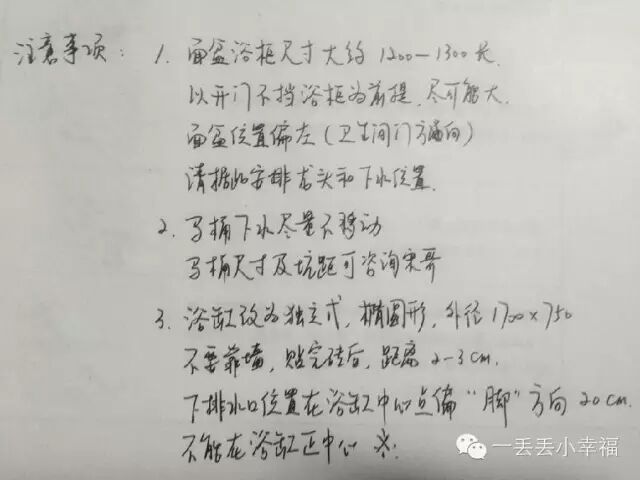 注意事项：1. 面盆浴柜尺寸大约1200—1300长.
以开门不挡浴柜为前提，尽可能大.
面盆位置偏左（卫生间门方向）
请据此安排龙头和下水位置.
2. 马桶下水尽量不移动
马桶尺寸及坑距可咨询宋哥
3. 浴缸改为独立式，椭圆形，外径1700×750
不要靠墙，贴完砖后，距离2-3cm.
下排水口位置在浴缸中心点偏“脚”方向20cm.
不能在浴缸正中心 ※.
一丢丢小幸福